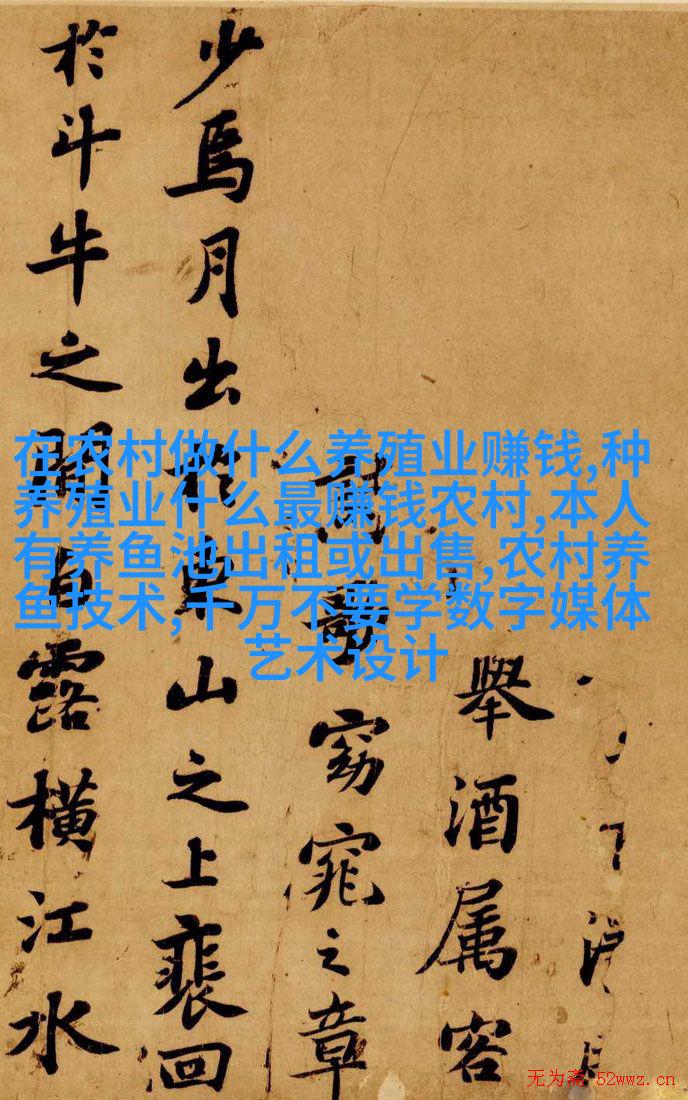 舉酒属客
歌窈窕之章
少焉月出於東山之上裴回
於斗牛之間白露横江水
在农村做什么养殖业赚钱,种
养殖业什么最赚钱农村,本人
有养鱼池出租或出售,农村养
鱼技术,千万不要学数字媒体
艺术设计
无为斋 52wwz.cn